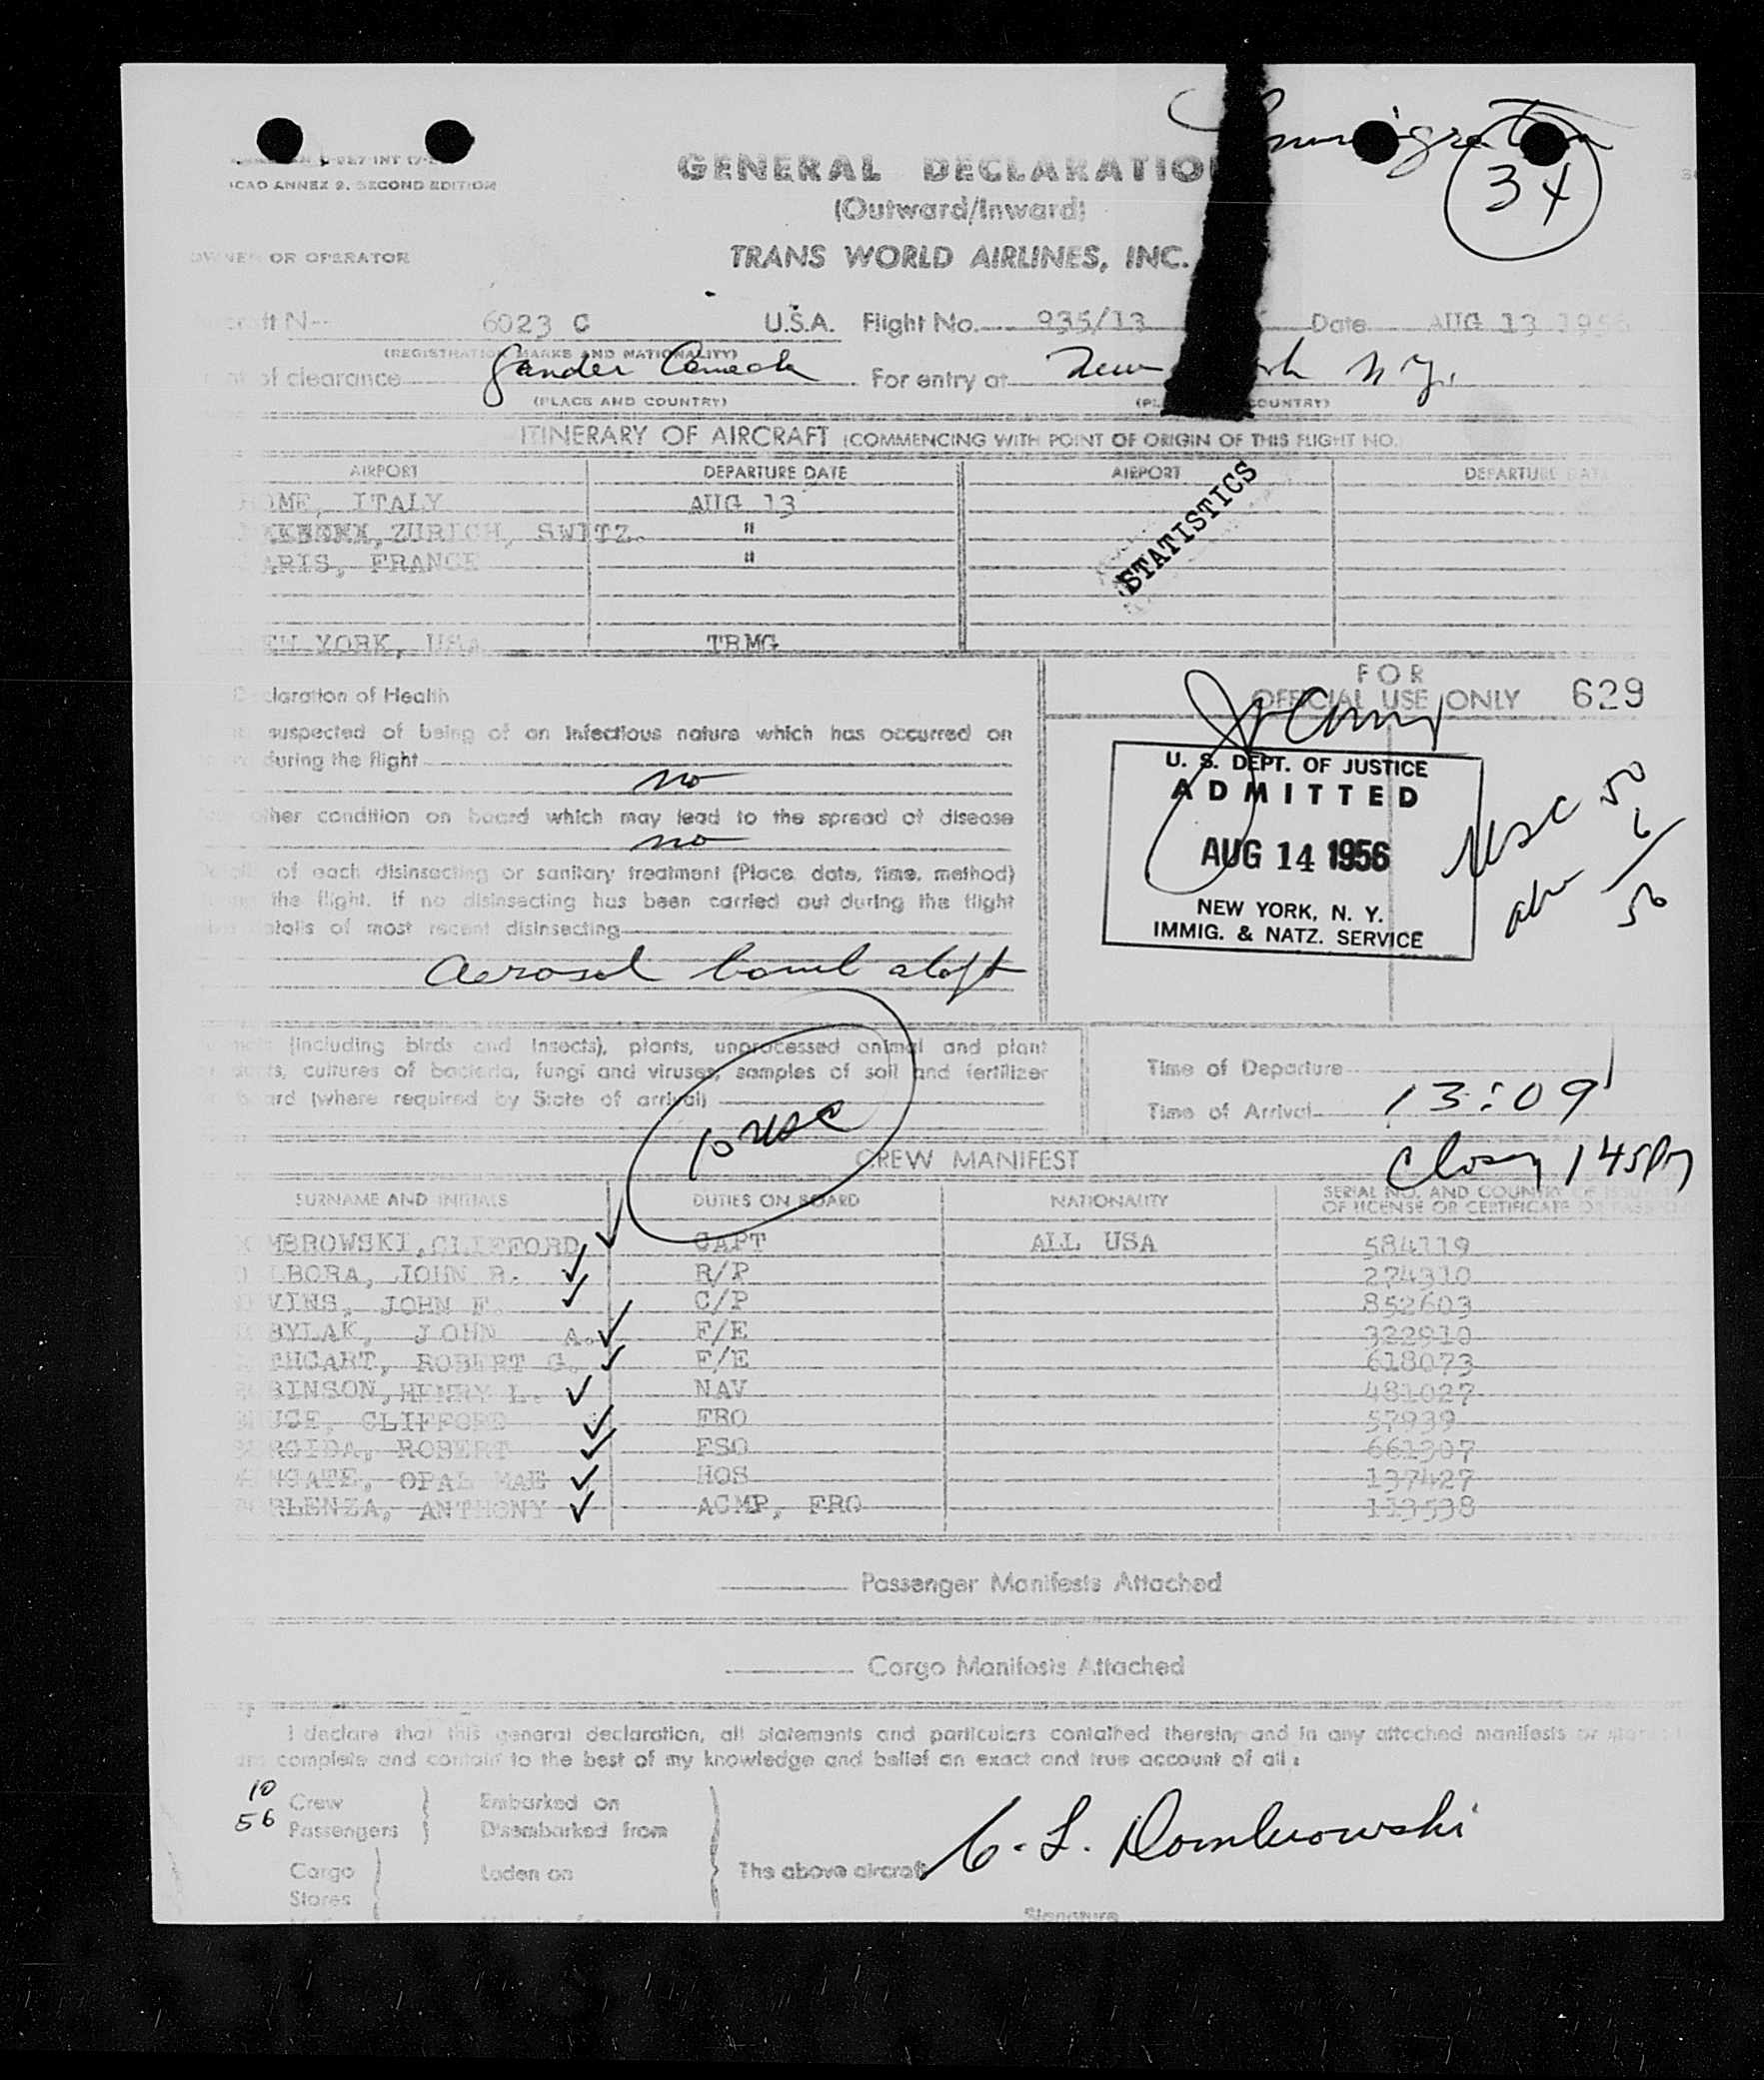 Immigration
34
ICAO ANNEX 9, SECOND EDITION
GENERAL DECLARATIO
(Outward/Inward)
OR OPERATOR
TRANS WORLD AIRLINES, INC.
6023 C U.S.A. Flight No. 935/13 Date AUG 13 1956
(REGISTRATION MARKS AND NATIONALITY)
of clearance Gander Canada For entry at New York N.Y.
(PLACE AND COUNTRY) COUNTRY)
ITINERARY OF AIRCRAFT (COMMENCING WITH POINT OF ORIGIN OF THIS FLIGHT NO.
AIRPORT DEPARTURE DATE AIRPORT DEPARTURE DATE
OME, ITALY AUG 13
ZURICH, SWITZ. "
ARIS, FRANCE "
STATISTICS
EW YORK, USA TRMG
FOR
OFFICIAL USE ONLY 629
claration of Health
suspected of being of an infectious nature which has occurred on
during the flight
no
other condition on board which may lead to the spread of disease
no
of each disinsecting or sanitary treatment (Place, date, time, method)
the flight. If no disinsecting has been carried out during the flight
details of most recent disinsecting
aerosol bomb aloft
U. S. DEPT. OF JUSTICE
ADMITTED
AUG 14 1956
NEW YORK, N. Y.
IMMIG. & NATZ. SERVICE
usc 50
6
56
(including birds and insects), plants, unprocessed animal and plant
cultures of bacteria, fungi and viruses, samples of soil and fertilizer
ard (where required by State of arrival)
10 usc
Time of Departure
Time of Arrival 13:09
145 PM
CREW MANIFEST
SURNAME AND INITIALS DUTIES ON BOARD NATIONALITY SERIAL NO. AND COUNTRY OF
OF LICENSE OR CERTIFICATE OR
MBROWSKI, CLIFFORD CAPT ALL USA 584119
LBORA, JOHN R. R/P 274310
VINS, JOHN F. C/P 852603
BYLAK, JOHN A. F/E 322910
THCART, ROBERT G. F/E 618073
BINSON, HENRY L. NAV 481027
UCE, CLIFFORD FRO 57939
RGIDA, ROBERT FSO 661307
NGATE, OPAL MAE HOS 137427
RLENZA, ANTHONY ACMP, FRO 113538
Passenger Manifests Attached
Cargo Manifests Attached
I declare that this general declaration, all statements and particulars contained therein, and in any attached manifests or
are complete and contain to the best of my knowledge and belief an exact and true account of all:
10 Crew Embarked on
56 Passengers Disembarked from
Cargo Laden on The above aircraft C. L. Dombrowski
Stores
Signature